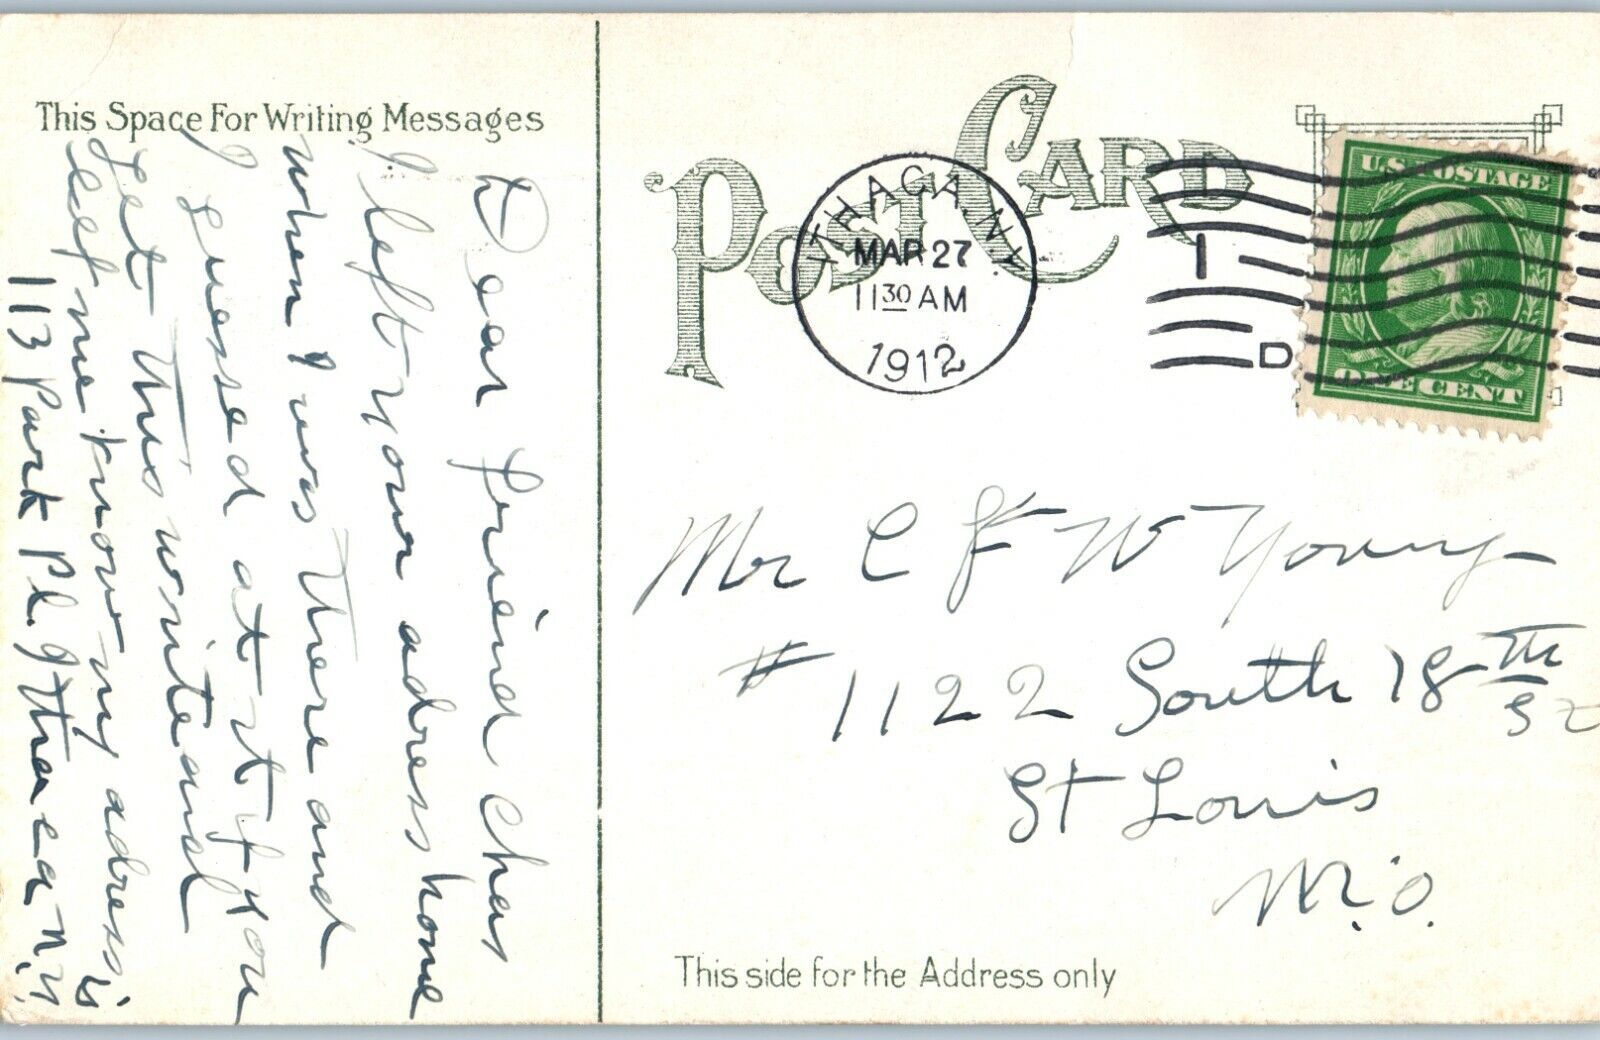 This Space For Writing Messages
Dear friend Chas
I left your address home
When I was there and
I guessed at it if you
get this write and
let me know my address is
113 Park Pl. Ithaca N.Y.
POST CARD
ITHACA, N.Y.
MAR 27
11 30 AM
1912
I
D
U.S. POSTAGE
ONE CENT
Mr C F W Young
# 1122 South 18th
St
St Louis
Mo.
This side for the Address only